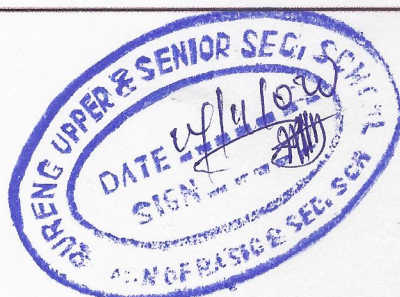 BURENG UPPER & SENIOR SEC. SCHOOL
DATE
SIGN
OF BASIC & SEC. SCH